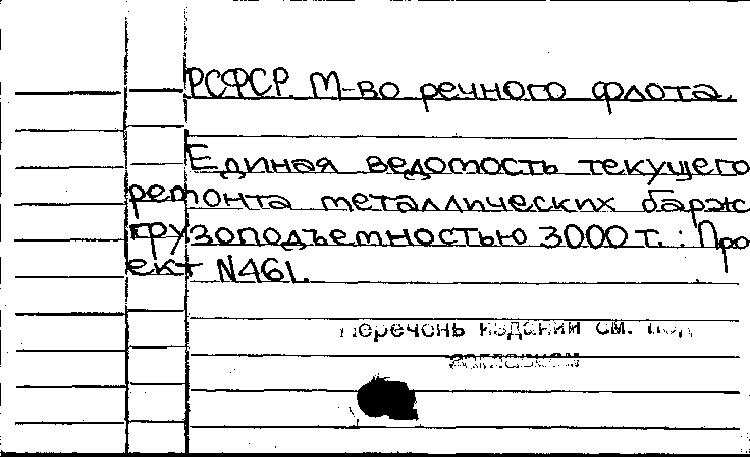 РСФСР. М-во речного флота.
Единая ведомость текущего
ремонта металлических барж
грузоподъемностью 3000 т. : Про
ект N461.
Перечень изданий см. под
заглавием